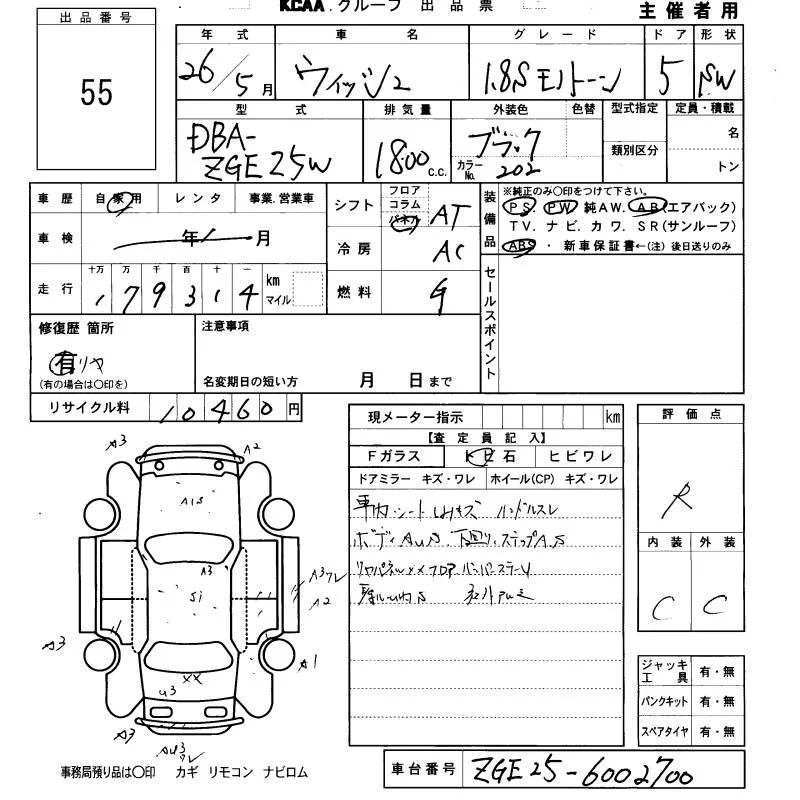 KCAA.グループ 出品票
主催者用
出品番号
55
年式 車名 グレード ドア 形状
26/5月 ウィッシュ 1.8Sモノトーン 5 SW
型式 排気量 外装色 色替 型式指定 定員・積載
DBA-ZGE25W 1800 C.C. ブラック
カラーNo. 202
類別区分
名
トン
車歴 自家用 レンタ 事業.営業車
車検 年 月
走行 十万 万 千 百 十 一
179314 km
マイル
シフト フロア コラム パネル AT
冷房 AC
燃料 G
装備品
※純正のみ〇印をつけて下さい。
PS PW 純AW. AB(エアバック)
TV. ナビ. カワ. SR(サンルーフ)
ABS ・ 新車保証書←(注)後日送りのみ
セールスポイント
修復歴 箇所
有 リヤ
(有の場合は〇印を)
注意事項
名変期日の短い方 月 日まで
リサイクル料 10460円
現メーター指示 km
【査定員記入】
Fガラス トビ石 ヒビワレ
ドアミラー キズ・ワレ ホイール(CP) キズ・ワレ
車内.シート ハンドルスレ
ボディAUS 下回り.ステップA.S
リヤパネルXXフロア バンパーステー
評価点
R
内装 外装
C C
A3
A2
A1S
A3
A3ワレ
S1
A2
A3
A1
XX
U3
A3
AU3
ワレ
ジャッキ工具 有・無
パンクキット 有・無
スペアタイヤ 有・無
事務局預り品は〇印 カギ リモコン ナビロム
車台番号 ZGE25-6002700